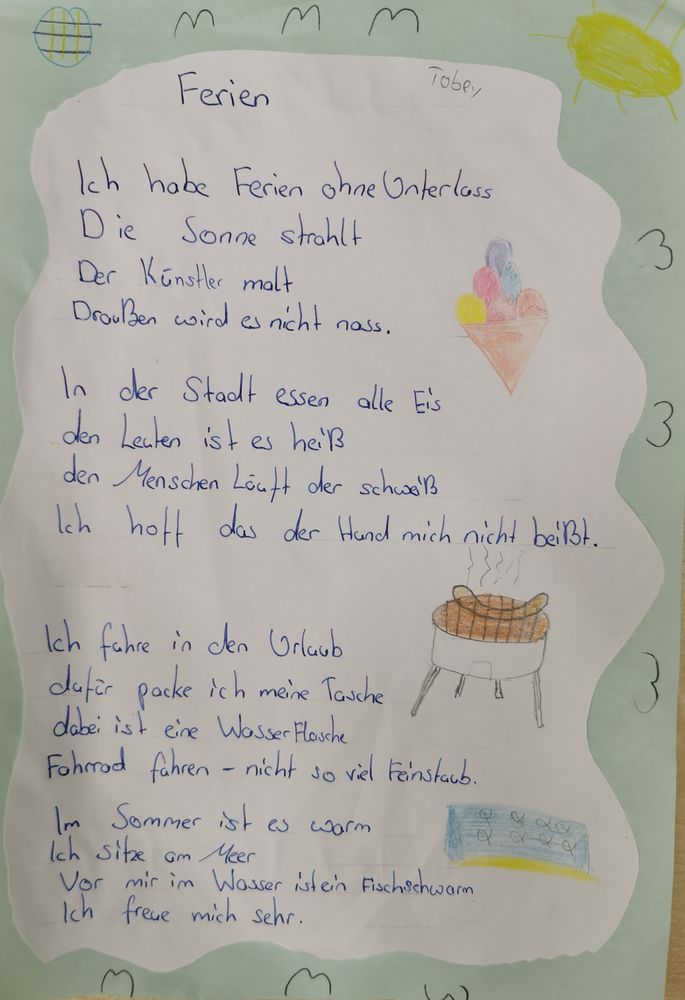 Tobey
Ferien
Ich habe Ferien ohne Unterlass
Die Sonne strahlt
Der Künstler malt
Draußen wird es nicht nass.
In der Stadt essen alle Eis
den Leuten ist es heiß
den Menschen Läuft der schweiß
Ich hoff das der Hund mich nicht beißt.
Ich fahre in den Urlaub
dafür packe ich meine Tasche
dabei ist eine Wasserflasche
Fahrrad fahren - nicht so viel Feinstaub.
Im Sommer ist es warm
Ich sitze am Meer
Vor mir im Wasser ist ein Fischschwarm
Ich freue mich sehr.